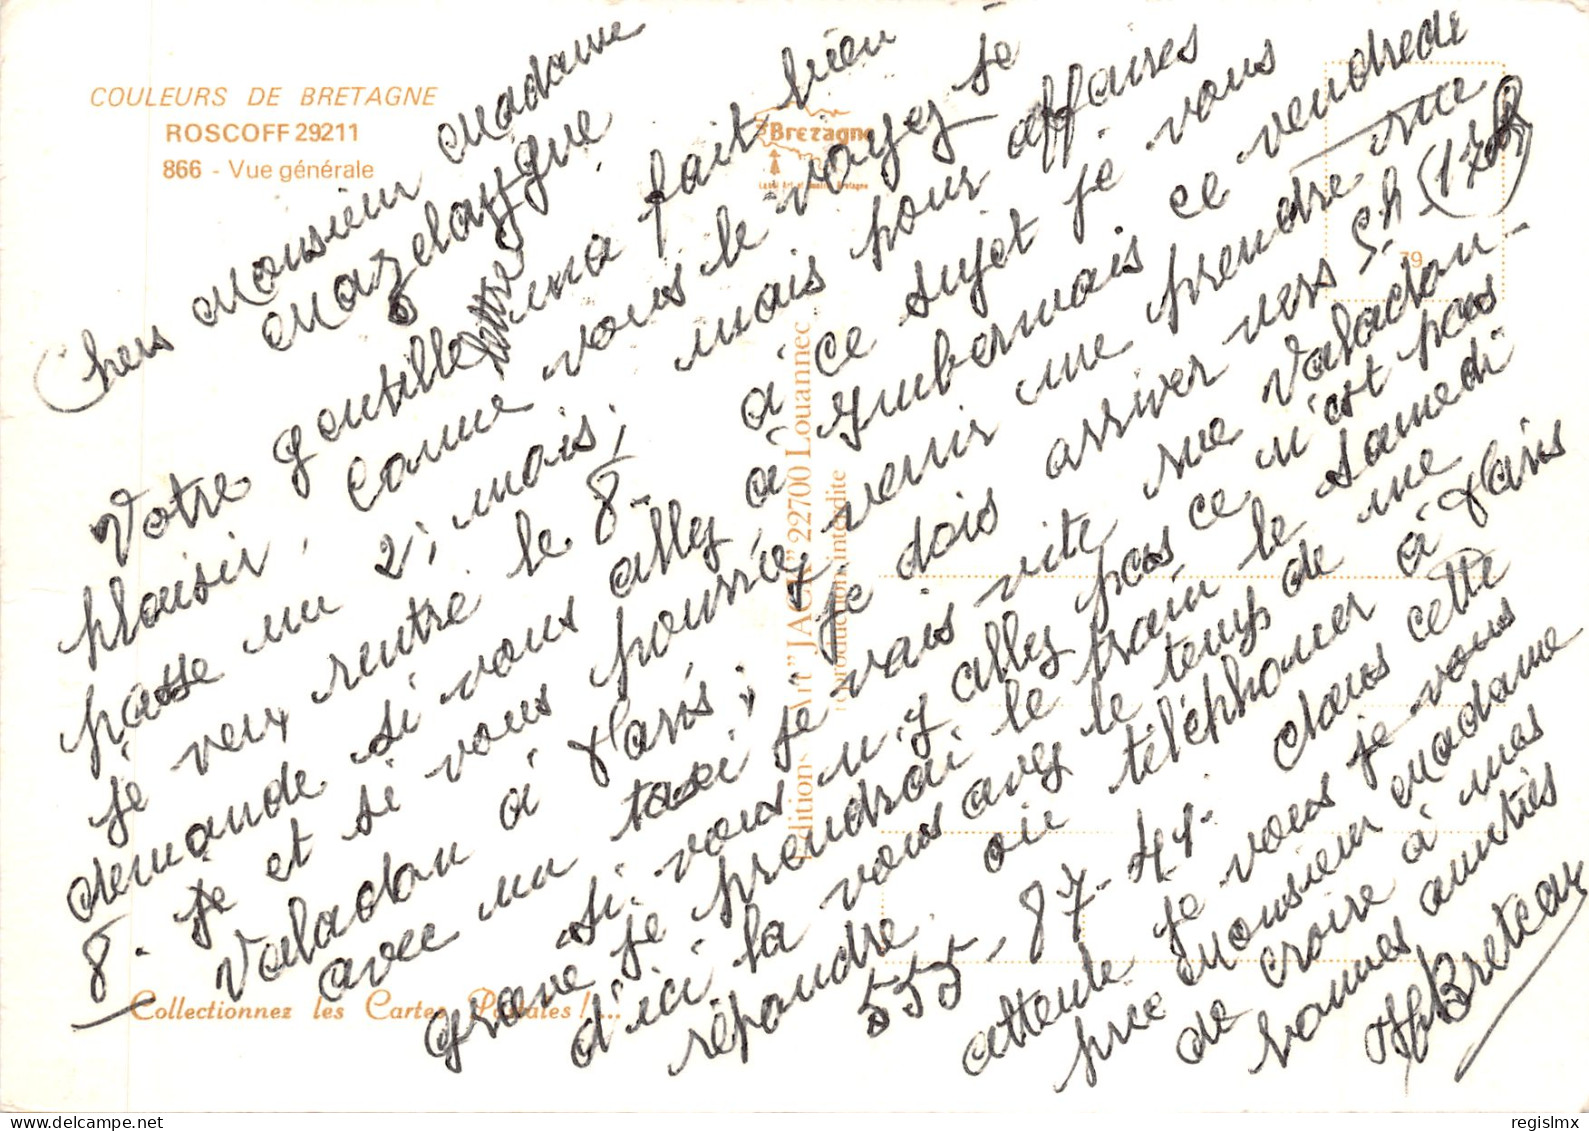 COULEURS DE BRETAGNE
ROSCOFF 29211
866 - Vue générale
Bretagne
79
Editions d'Art "JACK" 22700 Louannec
reproduction interdite
Collectionnez les Cartes Postales !...
Chers Monsieur Madame
Mazelaygue
Votre gentille m'a fait bien
plaisir, comme vous le voyez je
passe un 2, mois; mais pour affaires
je veux rentré le 8. à ce sujet je vous
demande si vous allez à Gubernais ce vendredi
8. Je et si vous pourriez venir me prendre rue
Valadon à Paris; je dois arriver vers 5h (17h)
avec un taxi je vais vite rue Valadon.
si vous n'y allez pas ce n'est pas
grave je prendrai le train le Samedi
d'ici la vous avez le temps de me
répondre ou téléphoner à Paris
555-87-41. dans cette
attente je vous je vous
prie Monsieur Madame
de croire à mes
bonnes amitiés
Breteau
regislmx